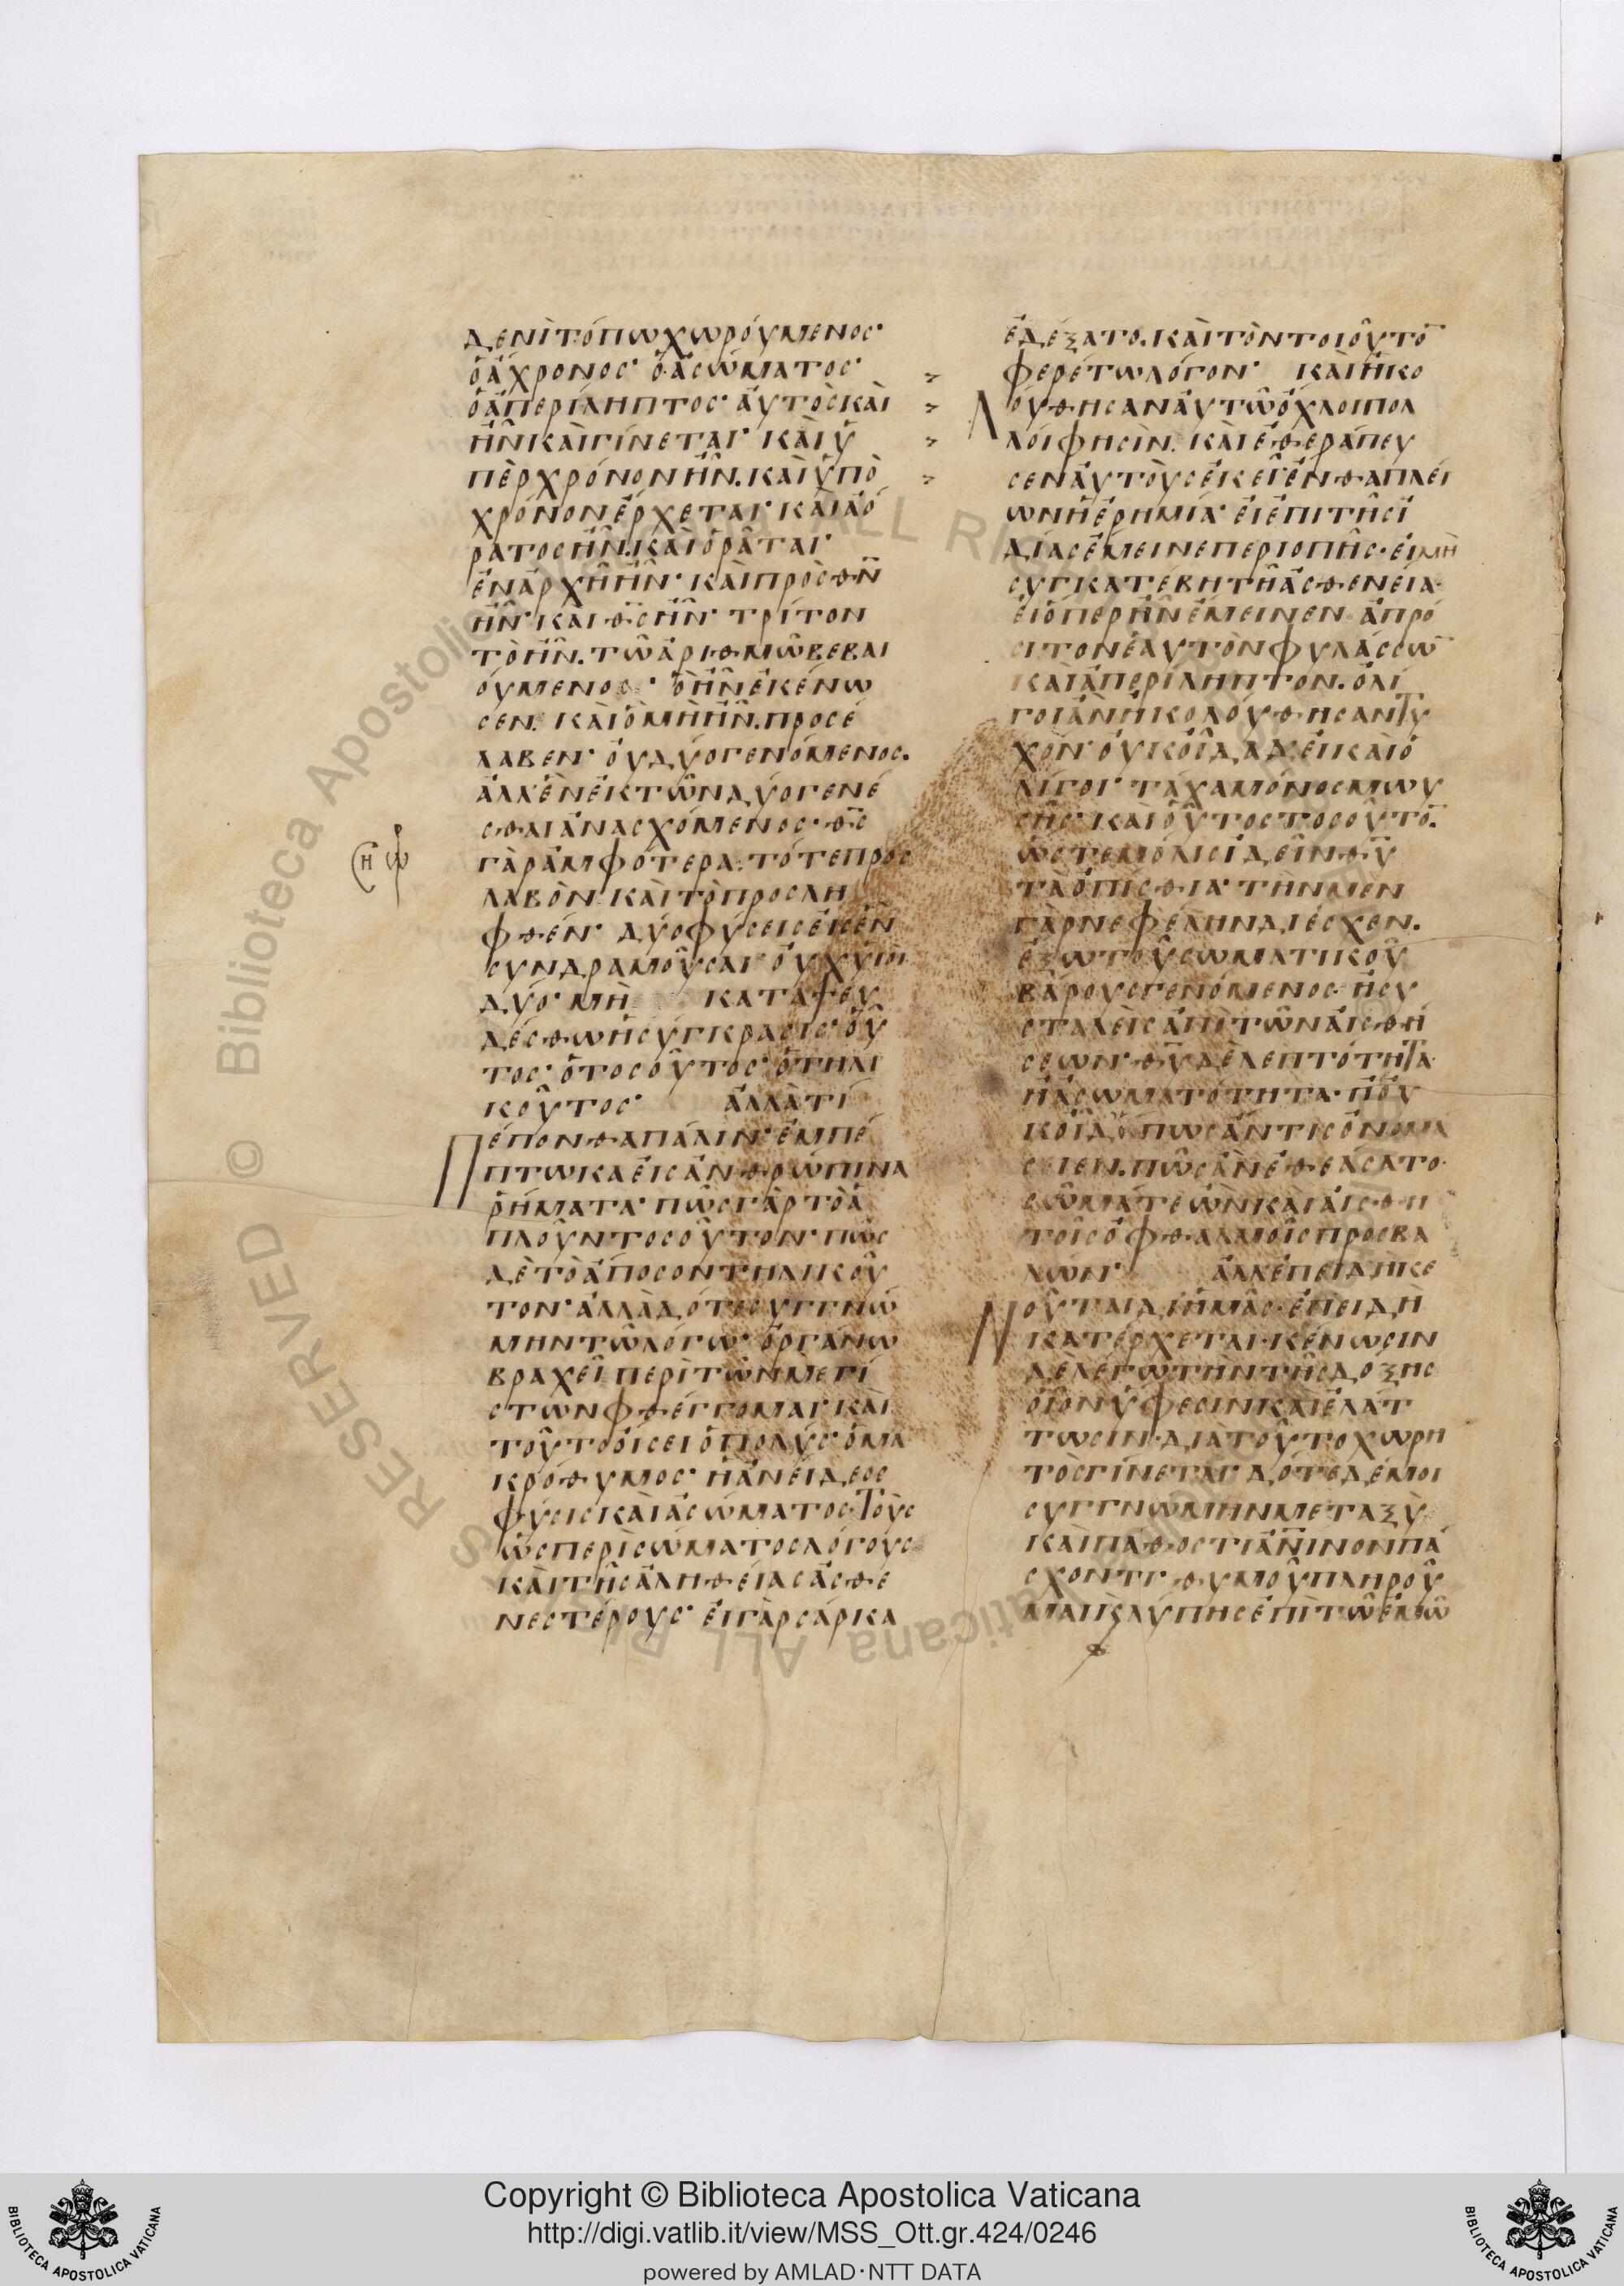 δενὶ τόπω χωρούμενος·
ὁ ἄχρονος· ὁ ἀσώματος·
ὁ ἀπερίληπτος· ἀυτὸς καὶ
ἦν καὶ γίνεται· καὶ ὑ
πὲρ χρόνον ἦν. καὶ ὑπὸ
χρόνον ἔρχεται· καὶ ἀό
ρατος ἦν. καὶ ὁρᾶται·
ἐν ἀρχῆ ἦν· καὶ πρὸς θν
ἦν· καὶ θς ἦν· τρίτον
τὸ ἦν. τῶ ἀριθμῶ βεβαι
ούμενος· ὃ ἦν ἐκένω
σεν. καὶ ὃ μὴ ἦν. προσέ
λαβεν· ὀυ δύο γενόμενος.
ἀλλ' ἓν ἐκ τῶν δύο γενέ
σθαι ἀνασχόμενος· θς
γὰρ ἀμφότερα. τό τε προς
λαβὸν. καὶ τὸ προσλη
φθέν· δύο φύσεις ἐις ἓν
συνδραμοῦσαι· ὀυχ ὑιοὶ
δύο· μὴ καταψευ
δέσθω ἡ σύγκρασις· ὁ ὗ
τος· ὁ τοσοῦτος· ὁ τηλι
κοῦτος· ἀλλὰ τί
πέπονθα πάλιν· ἐμπέ
πτωκα ἐις ἀνθρώπινα
ῥήματα· πῶς γὰρ τὸ ἁ
πλοῦν τοσοῦτον· πῶς
δὲ τὸ ἄποσον τηλικοῦ
τον· ἀλλὰ δότε συγγνώ
μην τῶ λόγω· ὀργάνω
βραχεῖ περὶ τῶν μεγί
στων φθέγγομαι· καὶ
τοῦτο ὀίσει ὁ πολύς· ὁ μα
κρόθυμος· ἡ ἀνείδεος
φύσις καὶ ἀσώματος. τοὺς
ὡς περὶ σώματος λόγους
καὶ τῆς ἀληθείας ἀσθε
νεστέρους· ἐι γὰρ σάρκα
(η ω
ἐδέξατο. καὶ τὸν τοιοῦτο
φερέτω λόγον· καὶ ἠκο
λούθησαν ἀυτῶ ὄχλοι πολ
λοί φησὶν. καὶ ἐθεράπευ
σεν ἀυτοὺς ἐκεῖ ἔνθα πλεί
ων ἡ ἐρημία· ἐι ἐπὶ τῆς ἰ
δίας ἔμεινε περιοπῆς· ἐι μὴ
συγκατέβη τῆ ἀσθενεία·
ἐι ὅπερ ἦν ἔμεινεν ἀπρό
σιτον ἑαυτὸν φυλάσσων
καὶ ἀπερίληπτον. ὀλί
γοι ἂν ἠκολούθησαν τυ
χὸν· ὀυκ ὀῖδα δὲ ἐι καὶ ὀ
λίγοι· τάχα μόνος μωυ
σῆς· καὶ οὗτος τοσοῦτο.
ὥστε μόλις ἰδεῖν θυ
τὰ ὀπίσθια· τὴν μὲν
γὰρ νεφέλην διέσχεν.
ἔξω τοῦ σωματικοῦ
βάρους γενόμενος· ἢ συ
σταλεὶς ἀπὸ τῶν ἀισθή
σεων· θυ δὲ λεπτότητα
ἢ ἀσωματότητα· ἢ ὀυ
κ ὀῖδ' ὅπως ἄν τις ὀνομα
σειεν. πῶς ἂν ἐθεάσατο·
σῶμά τε ὢν καὶ ἀισθη
τοῖς ὀφθαλμοῖς προσβα
λών· ἀλλ' ἐπειδὴ κε
νοῦται δι' ἡμᾶς· ἐπειδὴ
κατέρχεται· κένωσιν
δὲ λέγω τὴν τῆς δόξης
ὁῖον ὕφεσιν καὶ ἐλάτ
τωσιν. διὰ τοῦτο χωρη
τὸς γίνεται· δότε δέ μοι
συγγνώμην μεταξὺ
καὶ πάθος τι ἀνινον πά
σχοντι· θυμοῦ πληροῦ
μαι κ λύπης ἐπὶ τῶ ἐμῶ
Copyright © Biblioteca Apostolica Vaticana
http://digi.vatlib.it/view/MSS_Ott.gr.424/0246
powered by AMLAD·NTT DATA